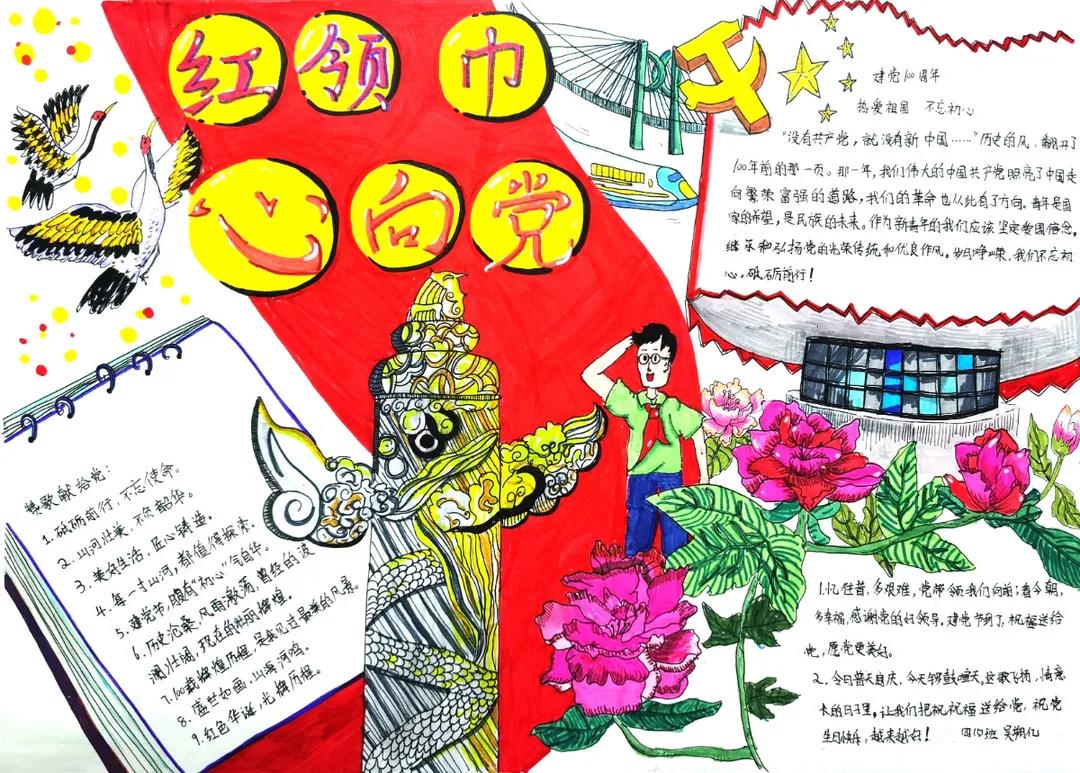 红领巾
心向党
建党100周年
热爱祖国 不忘初心
“没有共产党，就没有新中国……”历史的风，翻开了
100年前的那一页。那一年，我们伟大的中国共产党照亮了中国走
向繁荣富强的道路，我们的革命也从此有了方向。青年是国
家的希望，是民族的未来。作为新青年的我们应该坚定爱国信念。
继承和弘扬党的光荣传统和优良作风。岁月峥嵘，我们不忘初
心，砥砺前行！
赞歌献给党：
1. 砥砺前行，不忘使命。
2. 山河壮美，不负韶华。
3. 美好生活，匠心铸造。
4. 每一寸山河，都值得探索。
5. 建党节，腹有“初心”气自华。
6. 历史沧桑，风雨激荡，曾经的波
澜壮阔，现在的壮丽辉煌。
7. 100载辉煌历程，是我见过最美的风景。
8. 盛世如画，山海河鸣。
9. 红色华诞，光辉历程。
1. 忆往昔，多艰难，党带领我们向前；看今朝，
多幸福，感谢党的好领导。建党节到了，祝福送给
她，愿党更美好。
2. 今日普天同庆，今天锣鼓喧天。这歌飞扬，情意
卡的日子里。让我们把祝祝福送给党，祝党
生日快乐，越来越好！ 四（1）班